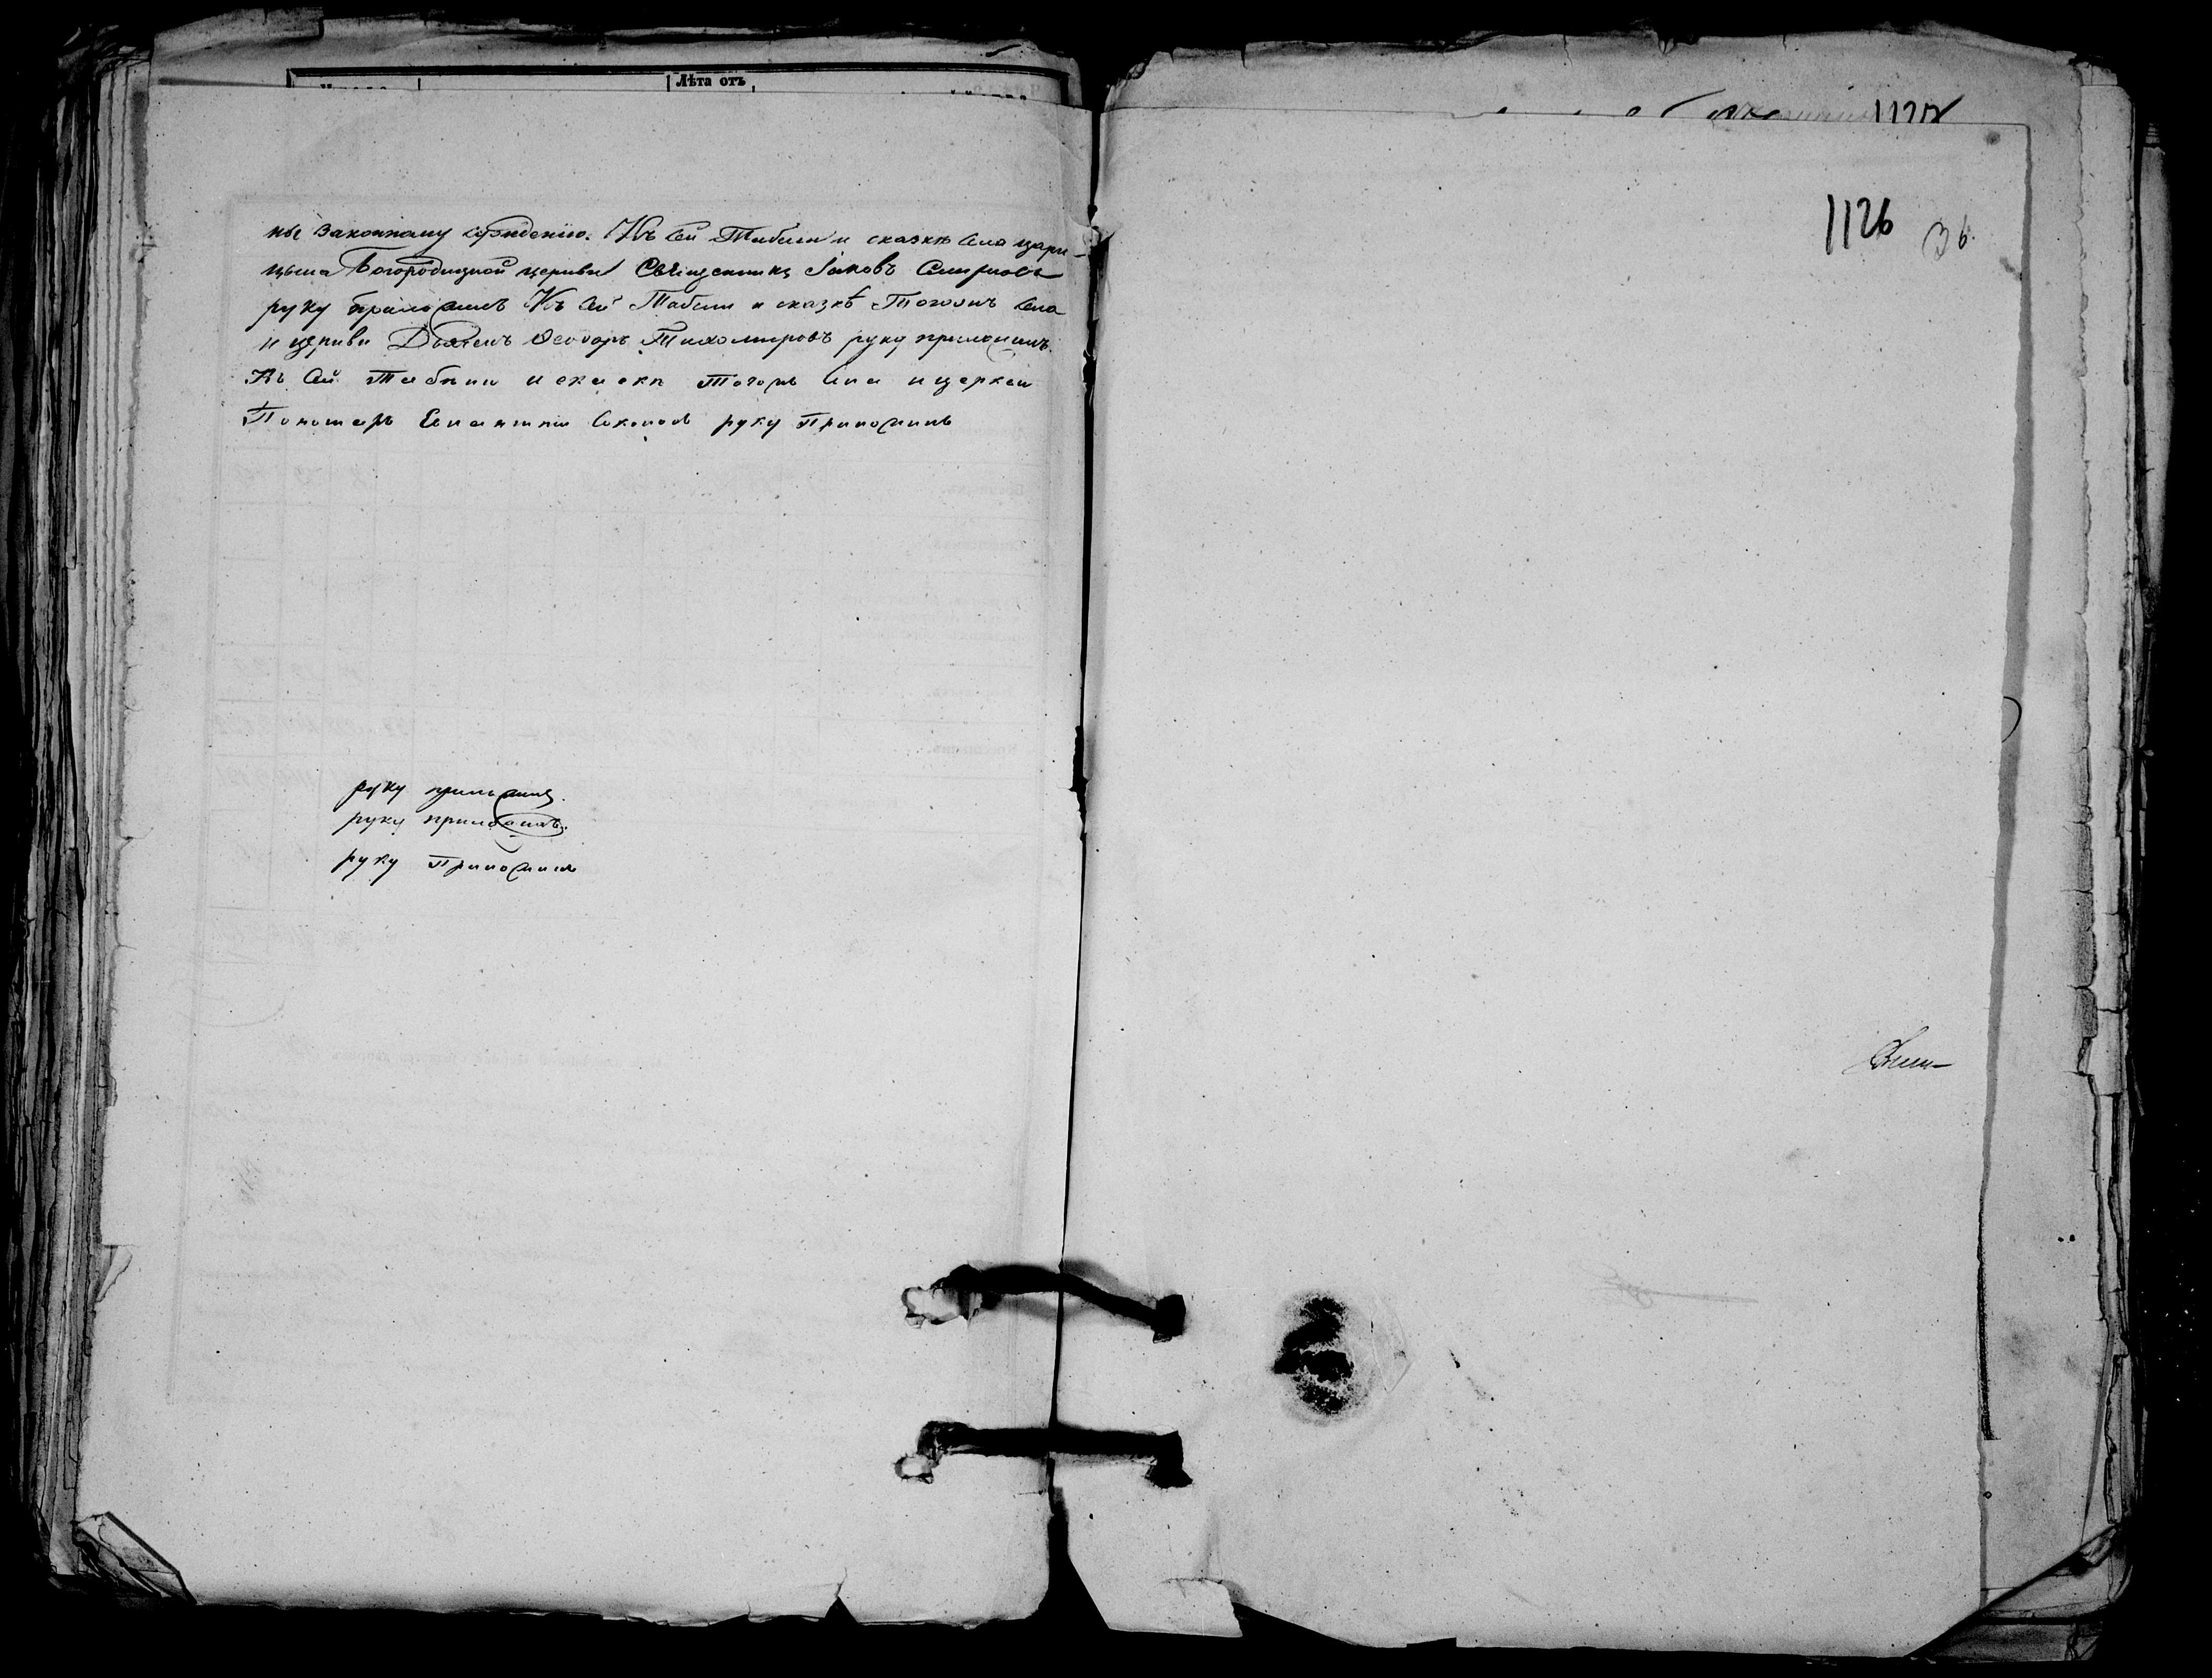 Лѣта отъ
ны законному сужденію. Къ сей Табели и сказкѣ села Цари-
цына Богородицкой церкви Священникъ Іаковъ Смирновъ
руку приложилъ Къ сей Табели и сказкѣ Тогожъ села
и церкви Дьяконъ Ѳеодоръ Тихомировъ руку приложилъ.
Къ сей Табели и скаски Тогожъ села и церкви
Пономарь Соколовъ руку Приложилъ
руку приложилъ.
руку приложилъ.
руку Приложилъ
1126 36.